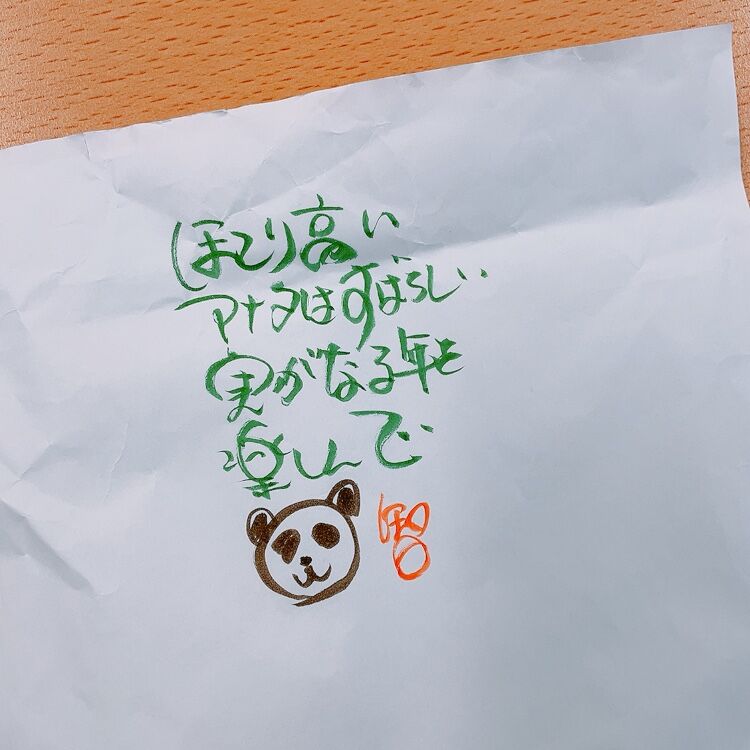 ほこり高い
アナタはすばらしい
実がなる年を
楽しんで